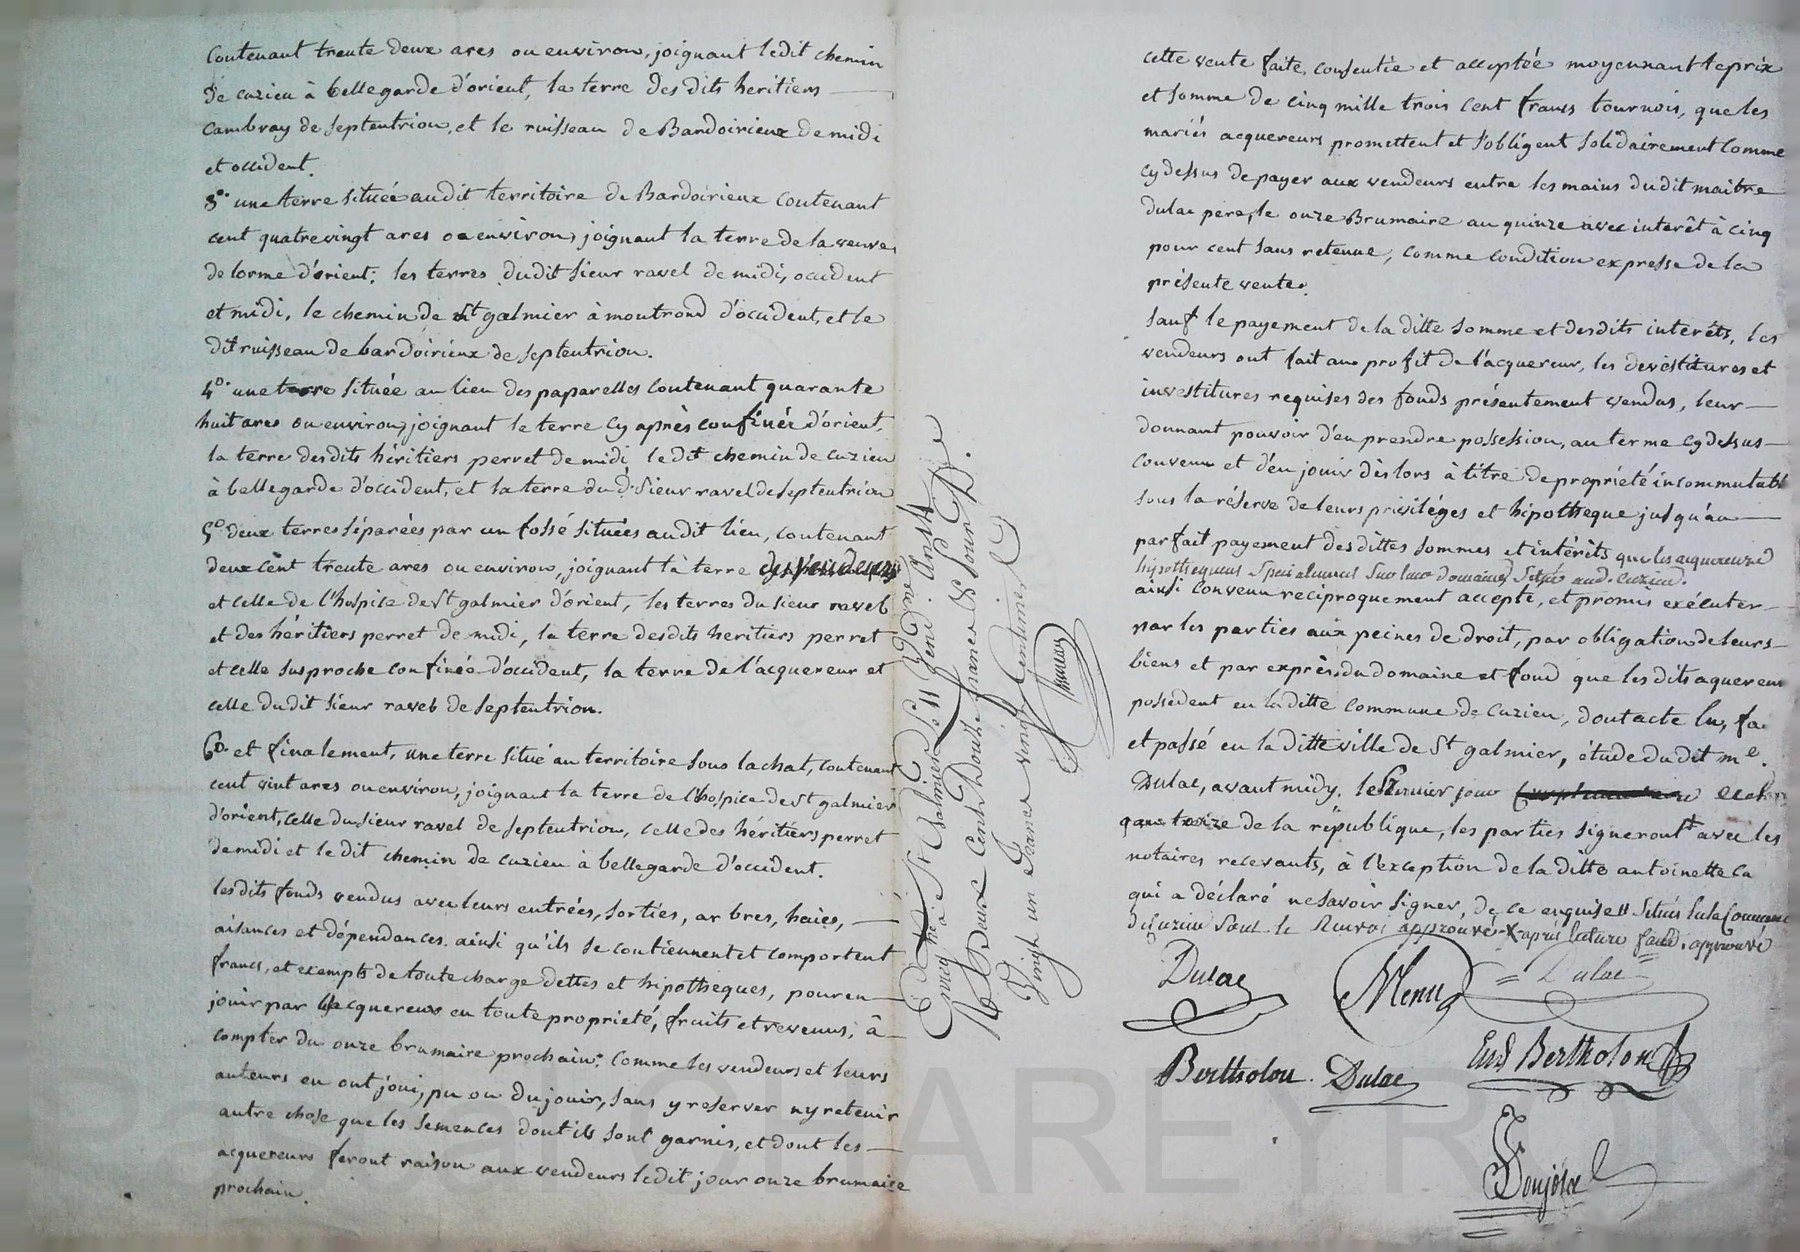 Contenant trente deux ares ou environ, joignant ledit chemin
de cuzieu à bellegarde d'orient, la terre des dits heritiers
cambray de septentrion, et le ruisseau de Bardoirieux de midi
et occident.
3°. une terre située audit territoire de Bardoirieux contenant
cent quatrevingt ares ou environ, joignant la terre de la veuve
de lorme d'orient; les terres dudit sieur ravel de midi, occident
et midi, le chemin de St galmier à montrond d'occident, et le
dit ruisseau de bardoirieux de septentrion.
4°. une terre située au lieu des paparelles contenant quarante
huit ares ou environ, joignant le terre cy après confinée d'orient,
la terre desdits héritiers perret de midi, ledit chemin de cuzieu
à bellegarde d'occident, et la terre du d. sieur ravel de septentrion
5° deux terres séparées par un fossé situées audit lieu, contenant
deux cent trente ares ou environ, joignant la terre des vendeurs
et celle de l'hospice de St galmier d'orient, les terres du sieur ravel
et des héritiers perret de midi, la terre desdits heritiers perret
et celle susproche confinée d'occident, la terre de l'acquereur et
celle dudit sieur ravel de septentrion.
6°. et finalement, une terre situé au territoire sous lachat, contenant
cent vint ares ou environ, joignant la terre de l'hospice de St galmier
d'orient, celle du sieur ravel de septentrion, celle des héritiers perret
de midi et le dit chemin de cuzieu à bellegarde d'occident.
les dits fonds vendus avec leurs entrées, sorties, arbres, haies,
aisances et dépendances. ainsi qu'ils se contiennent et comportent
francs, et exempts de toute charge dettes et hipothèques, pour en
jouir par l'acquereur en toute proprieté, fruits et revenus, à
compter du onze brumaire prochain; comme les vendeurs et leurs
auteurs en ont joui, pu ou du jouir, sans y reserver ny retenir
autre chose que les semences dont ils sont garnis, et dont les
acquereurs feront raison aux vendeurs ledit jour onze brumaire
prochain.
St Galmier le 11
Cent Douze francs
Vingt un francs vingt Centimes
cette vente faite, consentie et acceptée moyennant le prix
et somme de cinq mille trois cent francs tournois, que les
mariés acquereurs promettent et s'obligent solidairement comme
cy dessus de payer aux vendeurs entre les mains dudit maitre
dulac pere, le onze Brumaire an quinze avec interêt à cinq
pour cent sans retenue, comme condition expresse de la
présente vente.
sauf le payement de la ditte somme et desdits interêts, les
vendeurs ont fait au profit de l'acquereur, les devestitures et
investitures requises des fonds présentement vendus, leur
donnant pouvoir d'en prendre possession, au terme cy dessus
convenu et d'en jouir dès lors à titre de propriété incommutabl
sous la réserve de leurs privilèges et hipotheque jusqu'au
parfait payement desdittes sommes et intérêts que les acquereurs
hipothequent specialement sur leur domaine situé aud. cuzieu.
ainsi convenu réciproquement accepté, et promis exécuter
par les parties aux peines de droit, par obligation de leurs
biens et par exprès du domaine et fond que les dits aquereurs
possèdent en la ditte commune de cuzieu, dont acte lu, fa
et passé en la ditte ville de St galmier, étude du dit me.
Dulac, avant midy. le premier jour
quatorze de la république, les parties signeront + avec les
notaires recevants, à l'exception de la ditte antoinette ca
qui a déclaré ne savoir signer, de ce enquise // situés sur la Commune
de Cuzieu sont le Renvoi approuvé X après lecture faite. approuvé
Dulac Menu = Dulac =
Bertholon. Dulac Bertholon
Donjose
CHAREYRON